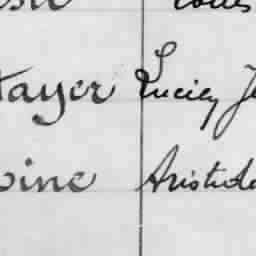 tayer Lucien Je
vine Aristide